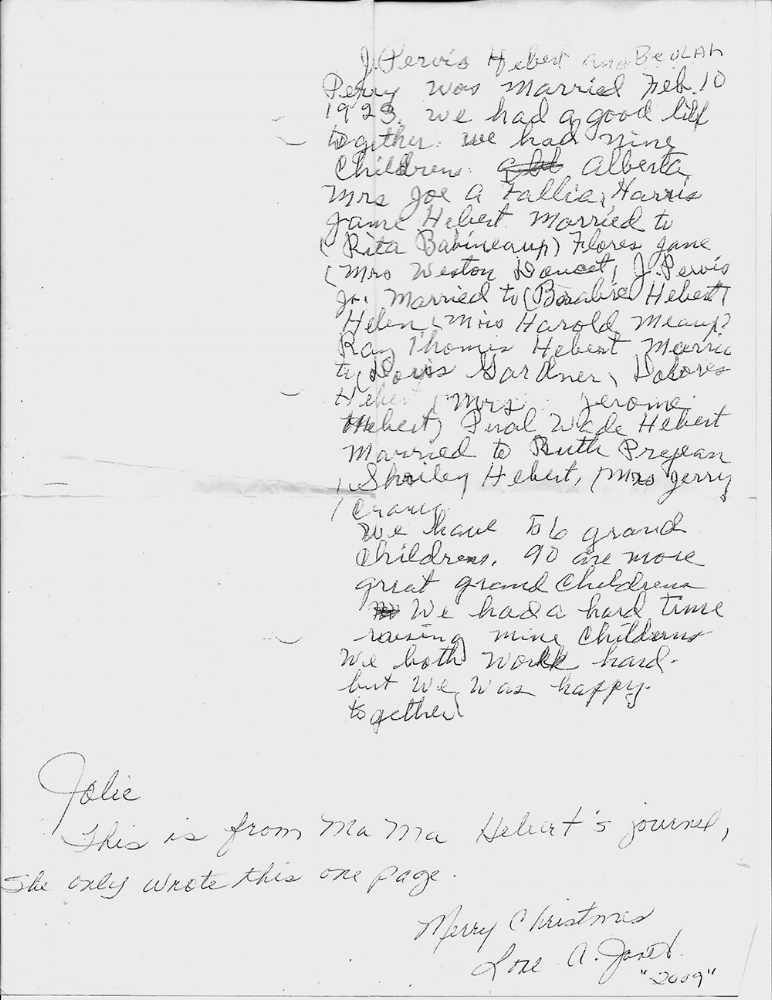 J. Pervis Hebert and BEULAH
Perry was married Feb. 10
1923. we had a good life
together. we had nine
Childrens. Alberta,
Mrs Joe A Tallia, Harris
Jame Hebert Married to
(Rita Babineaup) Flores Jane
(Mrs Weston Doucet) J. Pervis
Jr. Married to ( Hebert)
Helen (Mrs Harold Meaup)
Ray Thomas Hebert Married
to (Doris Gardner) Dolores
Hebert (Mrs Jerome
Hebert) Pual Wade Hebert
Married to Ruth Prejean
Shirley Hebert, (Mrs Jerry
We have 56 grand
Childrens. 90 are more
great grand Childrens
We had a hard time
raising nine Childrens
We both work hard.
but We was happy.
together
Jolie
This is from Ma Ma Hebert's journel,
She only wrote this one page.
Merry Christmas
Love A. Janet
"2009"